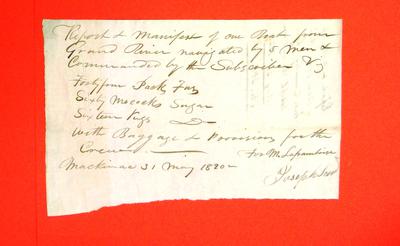 Report & Manifest of one Boat from
Grand River navigated by 5 men &
Commanded by the Subscriber Viz
Forty four Pack Furs
Sixty Mococks Sugar
Sixteen Kegs Do
with Baggage & Provisions for the
Crew
For Mr Laframboise
Mackinac 31 May 1820
Joseph